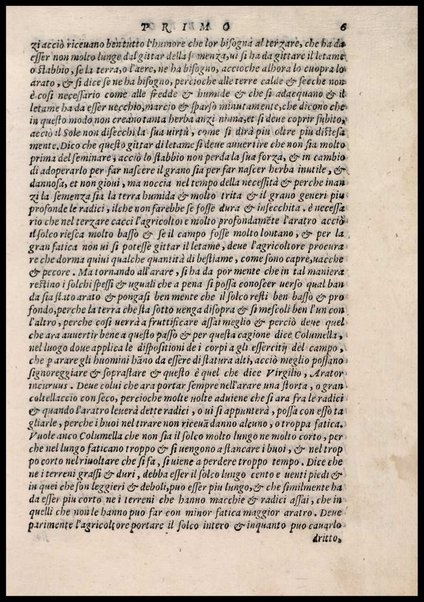 PRIMO 6
zi acciò riceuano ben tutto l'humore che lor bisogna al terzare, che ha da
esser non molto lunge dal gittar della semenza, ui si ha da gittare il letame
o stabbio, se la terra, o l'aere, ne ha bisogno, accioche alhora lo cuopra lo
arato, & si dice se ne ha bisogno, percioche alle terre calde & secche non
è cosi necessario come alle fredde & humide & che si adacquano & il
letame ha da esser uecchio, marcio & sparso minutamente, che dicono che
in questo modo non creano tanta herba anzi niuna, et si deue coprir subito,
acciò il Sole non disecchi la sua uirtù, come si dirà piu oltre piu distesa
mente. Dico che questo gittar di letame si deue auuertire che non sia molto
prima del seminare, acciò lo stabbio non perda la sua forza, & in cambio
di adoperarlo per far nascere il grano sia per far nascer herba inutile, &
dannosa, et non gioui, ma noccia nel tempo della necessità & perche inan
zi la semenza sia la terra humida & molto trita & il grano generi piu
profonde le radici, ilche non farebbe se fosse dura & insecchita. è necessa
rio che nel terzare cacci l'agricoltor molto profondamēte l'aratro acciò
il solco riesca molto basso & se il campo fosse molto lontano, & per la
gran fatica non ui si potesse gittar il letame, deue l'agricoltore procura
re che dorma quiui qualche quantità di bestiame, come sono capre, uacche
& pecore. Ma tornando all'arare, si ha da por mente che in tal maniera
restino i solchi spessi & uguali che a pena si possa conoscer uerso qual ban
da sia stato arato & pongasi ben mente che il solco resti ben basso & pro
fondo, perche la terra che sta sotto uenga disopra & si mescoli ben l'un con
l'altro, perche cosi uerrà a fruttificare assai meglio & perciò deue quel
che ara auuertir bene a questo passo & per questa cagione dice Columella,
nel luogo doue applica le dispositioni dei corpi a gli essercitij del campo,
che p arare gli huomini hāno da essere di statura alti, acciò meglio possano
signoreggiare & soprastare & questo è quel che dice Virgilio, Arator
incuruus. Deue colui che ara portar sempre nell'arare una storta, o gran
coltellaccio con seco, percioche molte uolte aduiene che si ara fra le radici
& quando l'aratro leuerà dette radici, o ui si appunterà, possa con esso ta
gliarle, perche i buoi nel tirare non riceuā danno alcuno, o troppa fatica.
Vuole anco Columella che non sia il solco molto lungo ne molto corto, per
che nel lungo faticano troppo & si uengono a stancare i buoi, & nel trop
po corto nel riuoltare che si fa, si uiene a perdere troppo tempo. Dice che
ne i terreni grassi & duri, debba esser il solco lungo cento e uenti piedi &
in quei che son leggieri & deboli, puo esser piu lungo, & che similmente ha
da esser piu corto ne i terreni che hanno macchie & radici assai, che in
quelli che non le hanno puo far con minor fatica maggior aratro. Deue
parimente l'agricoltore portare il solco intero & inquanto puo cauarlo
dritto,